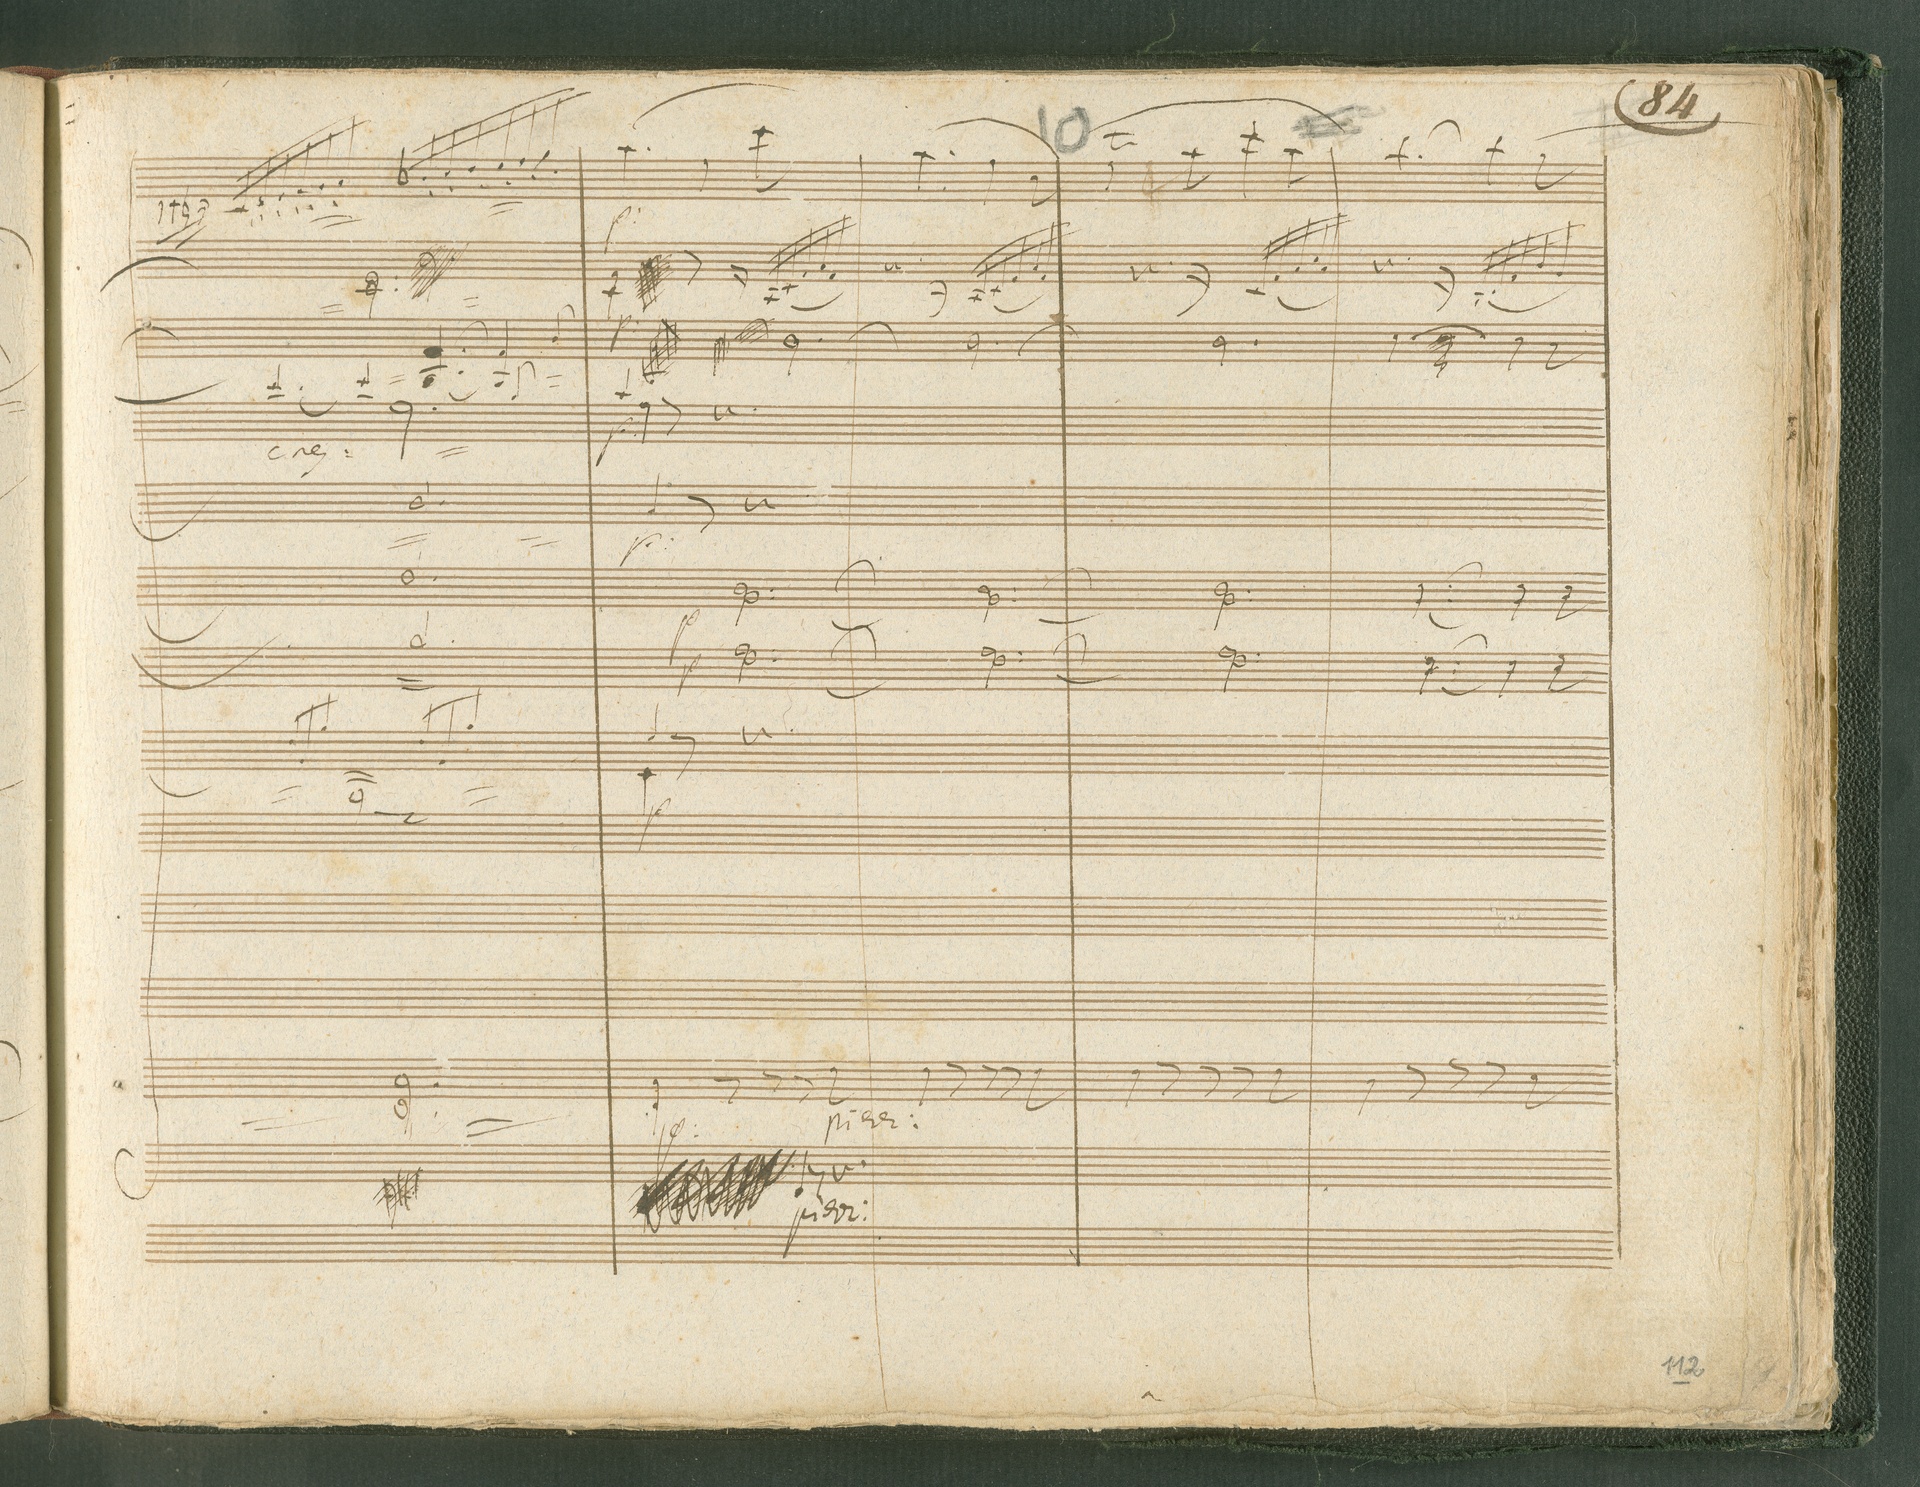 84
10
p:
cres:
p:
p:
p
p
p
p:
pizz:
pizz:
112